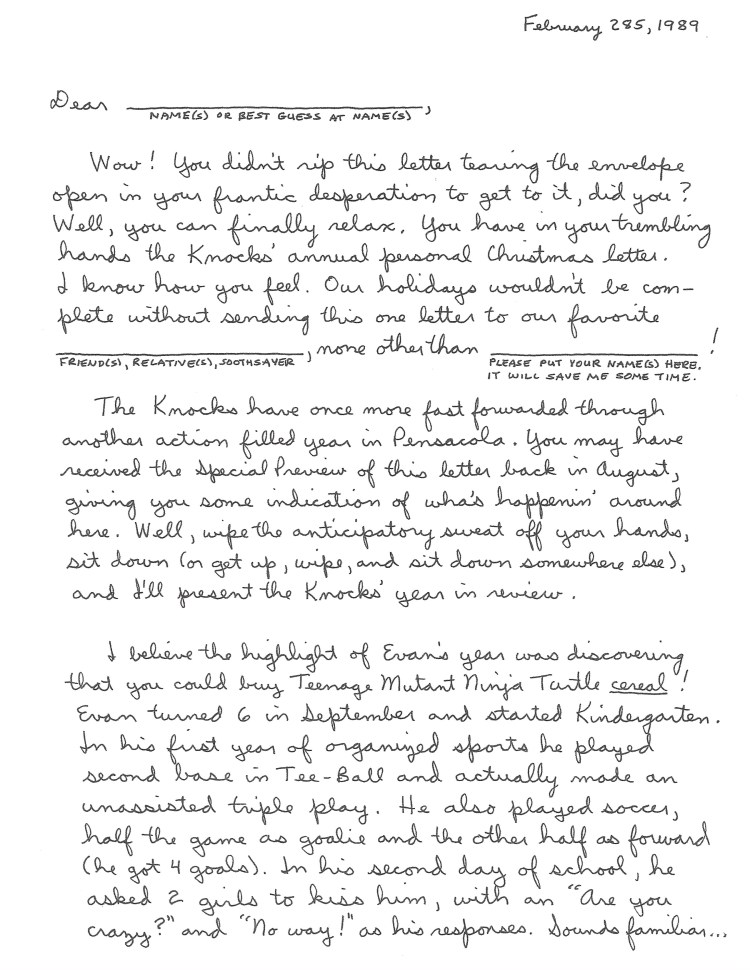 February 285, 1989
Dear ____________________,
NAME(S) OR BEST GUESS AT NAME(S)
Wow! You didn't rip this letter tearing the envelope
open in your frantic desperation to get to it, did you?
Well, you can finally relax. You have in your trembling
hands the Knocks' annual personal Christmas letter.
I know how you feel. Our holidays wouldn't be com-
plete without sending this one letter to our favorite
____________________, none other than ____________________!
FRIEND(S), RELATIVE(S), SOOTHSAYER
PLEASE PUT YOUR NAME(S) HERE.
IT WILL SAVE ME SOME TIME.
The Knocks have once more fast forwarded through
another action filled year in Pensacola. You may have
received the Special Preview of this letter back in August,
giving you some indication of what's happenin' around
here. Well, wipe the anticipatory sweat off your hands,
sit down (or get up, wipe, and sit down somewhere else),
and I'll present the Knocks' year in review.
I believe the highlight of Evan's year was discovering
that you could buy Teenage Mutant Ninja Turtle cereal!
Evan turned 6 in September and started Kindergarten.
In his first year of organized sports he played
second base in Tee-Ball and actually made an
unassisted triple play. He also played soccer,
half the game as goalie and the other half as forward
(he got 4 goals). In his second day of school, he
asked 2 girls to kiss him, with an "Are you
crazy?" and "No way!" as his responses. Sounds familiar...